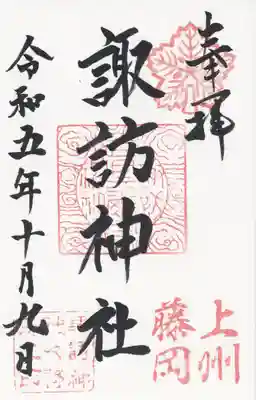 奉拝
上州
藤岡
諏訪神社
令和五年十月九日